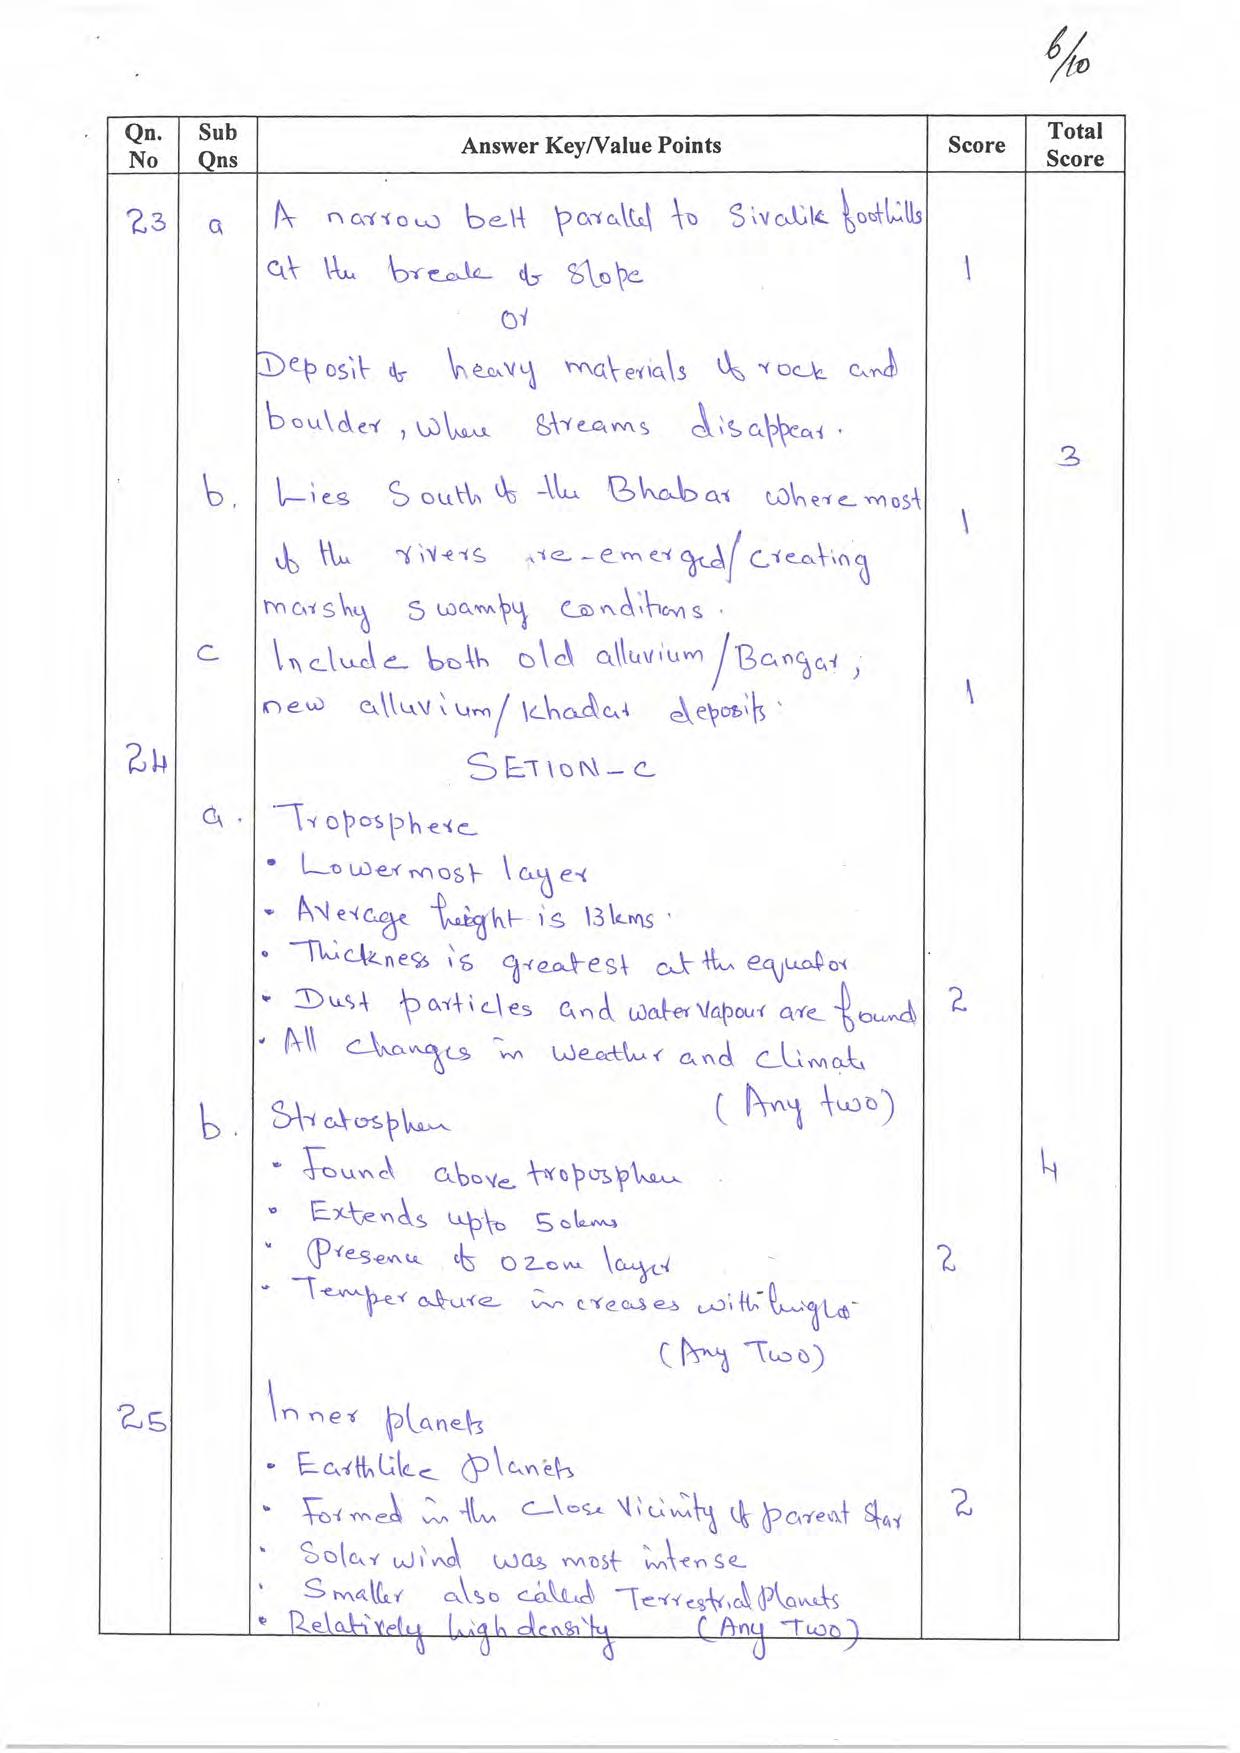 6/10
Qn. No Sub Qns Answer Key/Value Points Score Total Score
23 a A narrow belt parallel to Sivalik foothills
at the break of slope 1
Or
Deposit of heavy materials of rock and
boulder, where streams disappear.
3
b. Lies South of the Bhabar where most
of the rivers re-emerged/creating 1
marshy swampy conditions.
c Include both old alluvium/Bangar,
new alluvium/Khadar deposits. 1
24 SETION-C
a. Troposphere
• Lowermost layer
• Average height is 13kms.
• Thickness is greatest at the equator
• Dust particles and water vapour are found 2
• All changes in weather and climate
(Any two)
b. Stratosphere
• Found above troposphere 4
• Extends upto 50kms
• Presence of ozone layer 2
• Temperature increases with height
(Any Two)
25 Inner planets
• Earthlike planets
• Formed in the close vicinity of parent star 2
• Solar wind was most intense
• Smaller also called Terrestrial planets
• Relatively high density (Any Two)